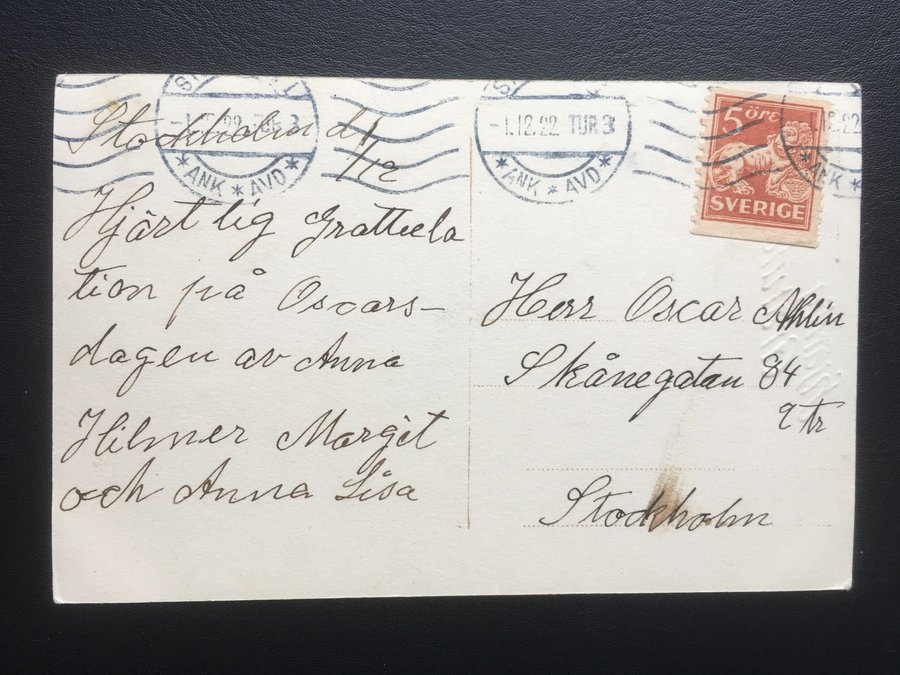 -1.12.22 TUR 3
* ANK * AVD *
-1.12.22 TUR 3
* ANK * AVD *
12.22
ANK *
5 öre
SVERIGE
Stockholm d. 1/12
Hjärtlig Grattula
tion på Oscars-
dagen av Anna
Hilmer Margit
och Anna Lisa
Herr Oscar Ahlin
Skånegatan 84
2 tr
Stockholm